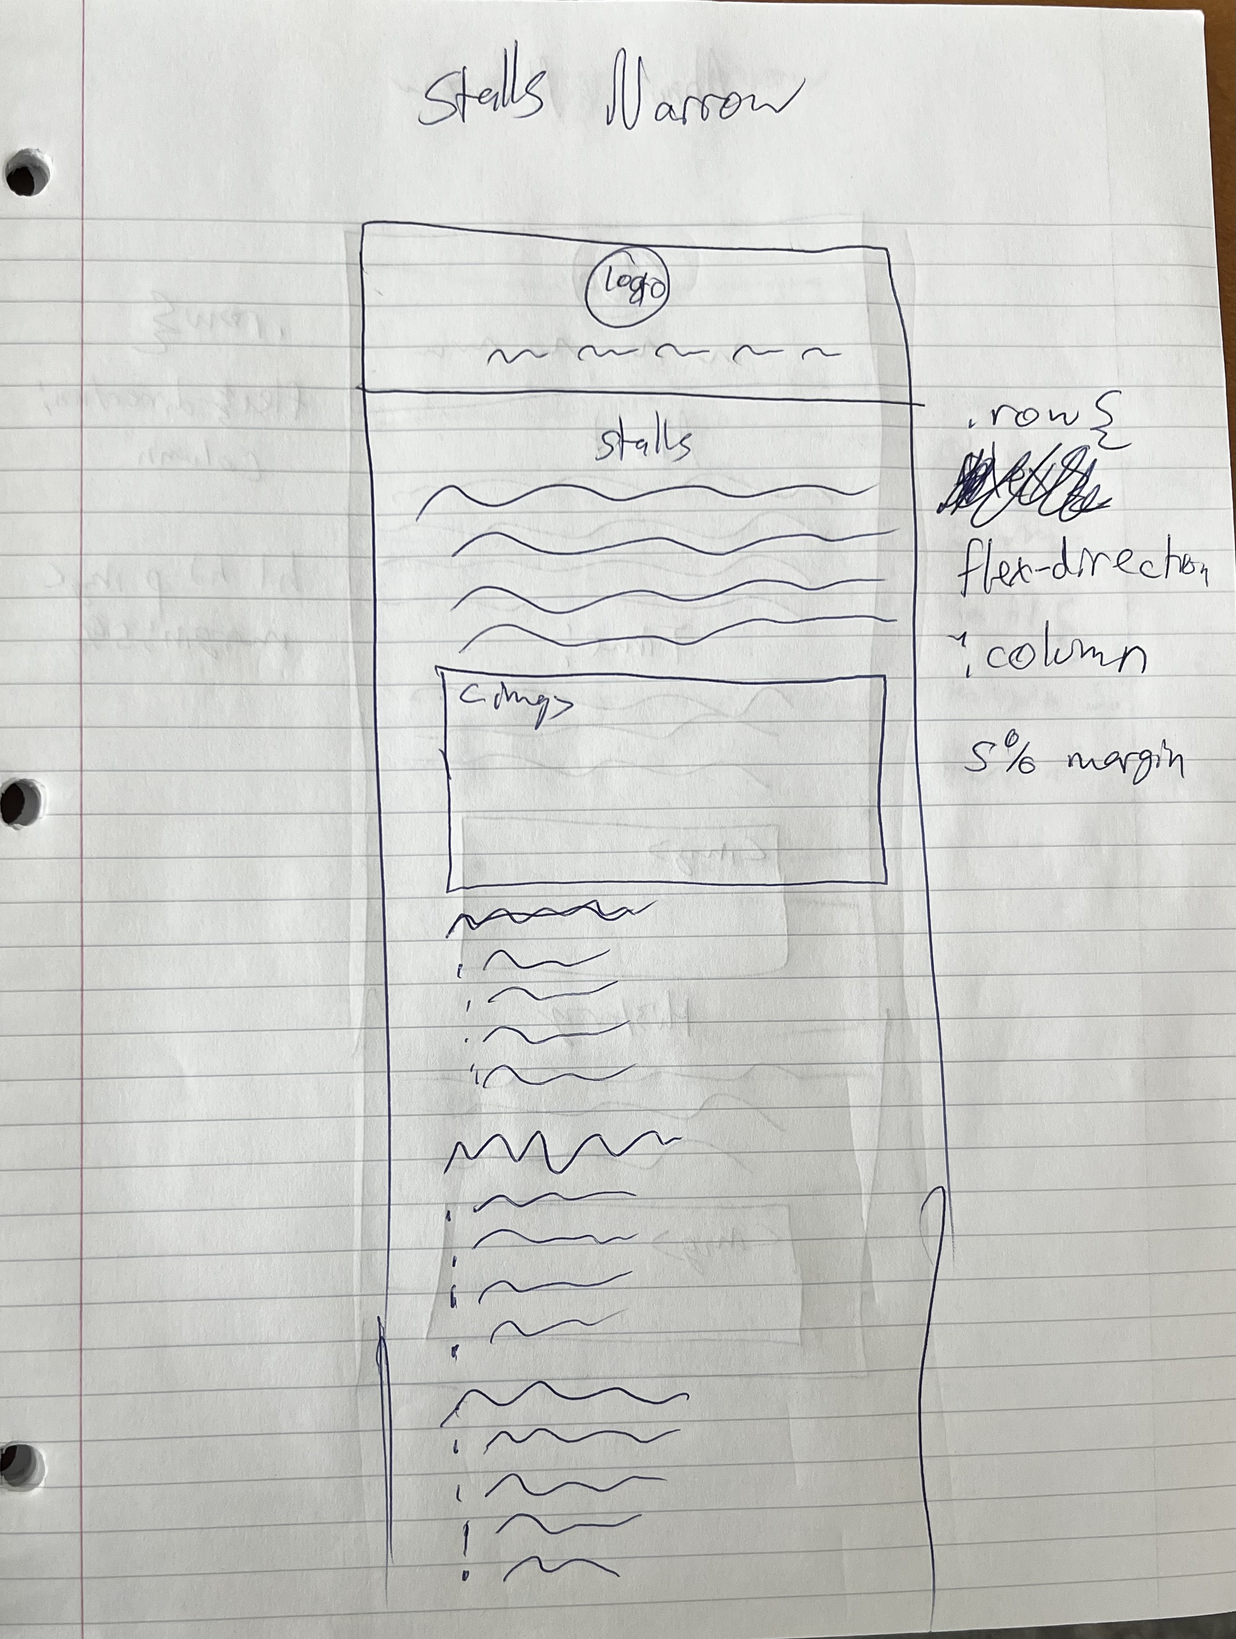 Stalls Narrow
logo
Stalls
<img>
.row {
flex-direction
: column
5% margin